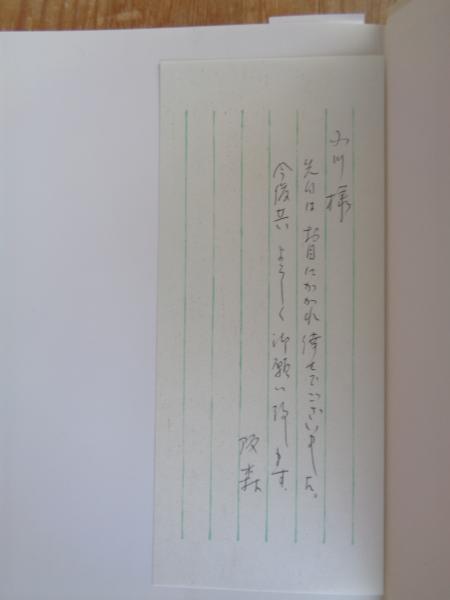 様
先日は お目にかかれ 倖せでございました。
今後共 よろしく 御願い致します。
阪森